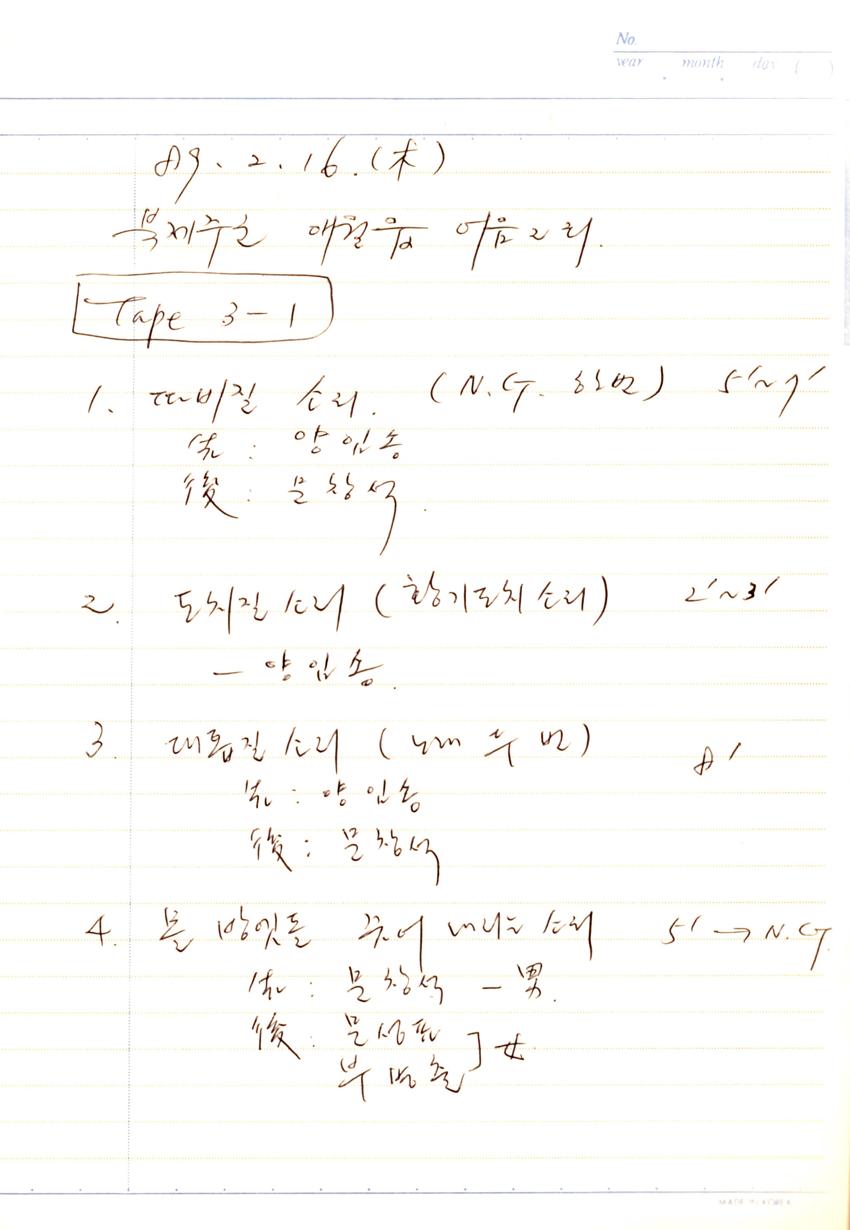 No.
year month day ( )
89. 2. 16. (木)
북제주군 애월읍 어음2리.
Tape 3-1
1. 따비질 소리. (N.G. 한번) 5'~7'
先 : 양임송
後 : 문창석.
2. 도치질 소리 (황기도치 소리) 2'~3'
- 양임송.
3. 대톱질 소리 (노래 두 번) 8'
先 : 양임송
後 : 문창석
4. 방엣돌 끗어 내리는 소리 5' → N.G.
先 : 문창석 - 男.
後 : ] 女
MADE IN KOREA